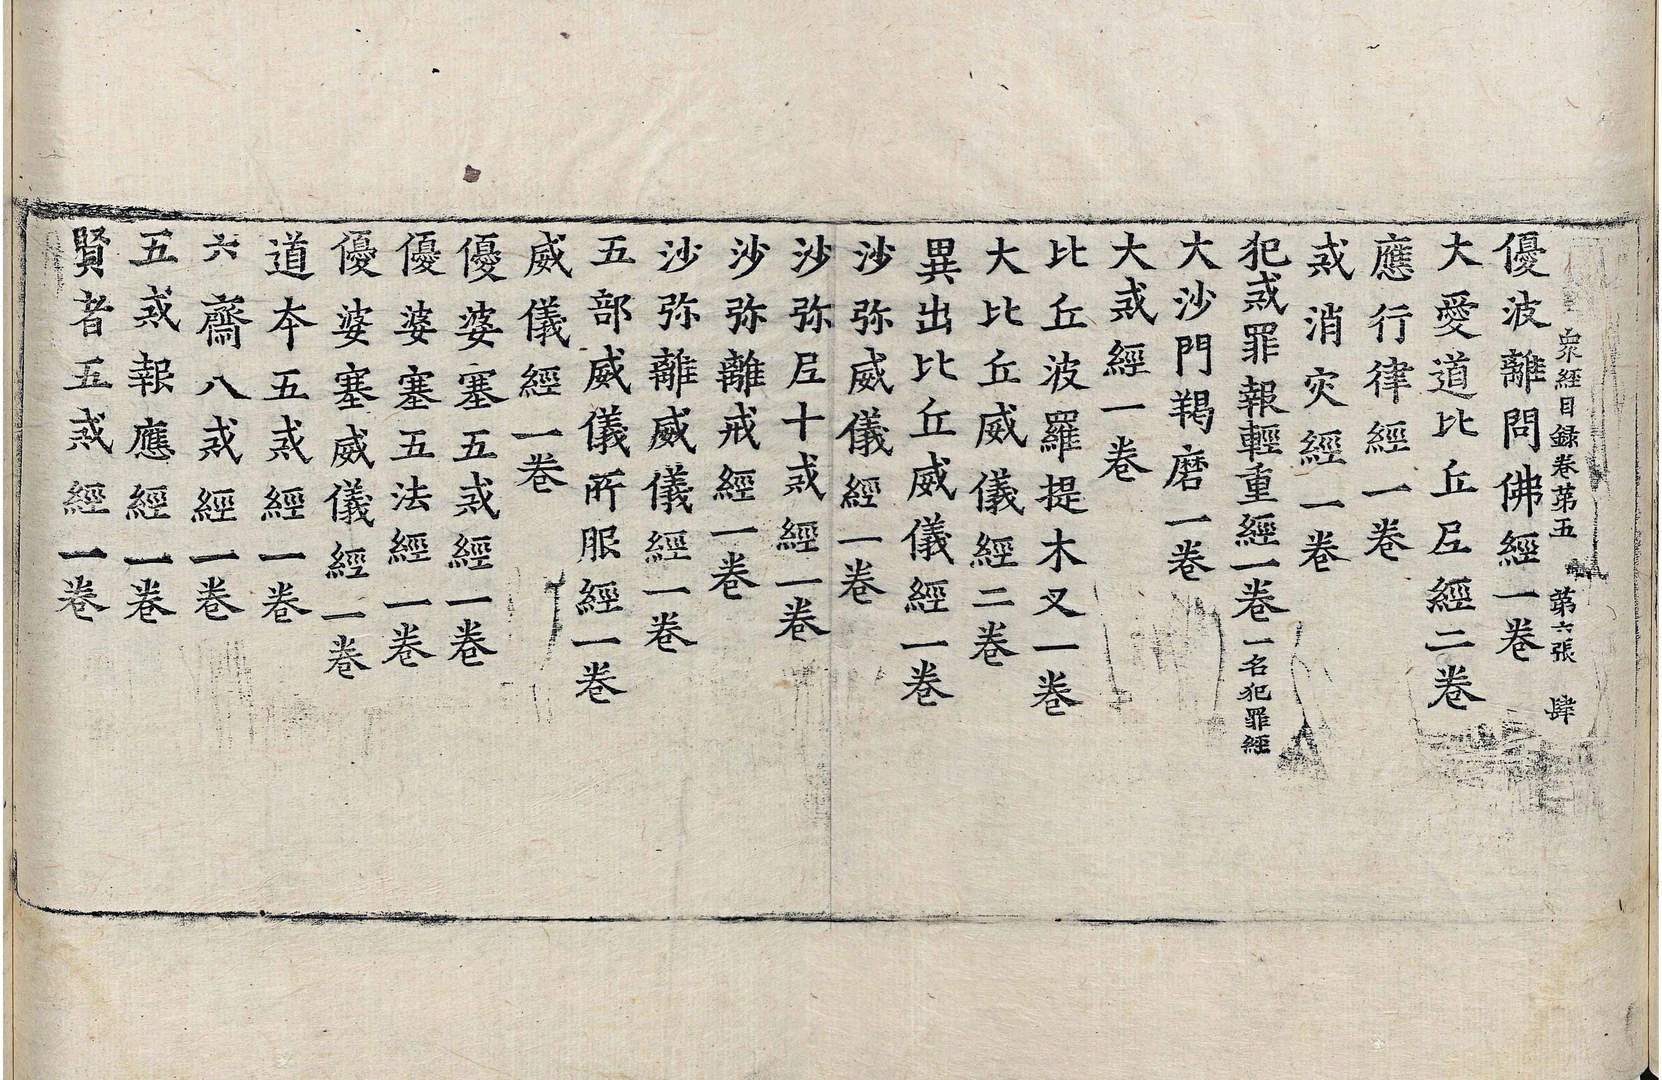 衆經目録卷苐五 苐六張 肆
優波離問佛經一卷
大愛道比丘尼經二卷
應行律經一卷
戒消灾經一卷
犯戒罪報輕重經一卷一名犯罪經
大沙門羯磨一卷
大戒經一卷
比丘波羅提木叉一卷
大比丘威儀經二卷
異出比丘威儀經一卷
沙弥威儀經一卷
沙弥尼十戒經一卷
沙弥離戒經一卷
沙弥離威儀經一卷
五部威儀所服經一卷
威儀經一卷
優婆塞五戒經一卷
優婆塞五法經一卷
優婆塞威儀經一卷
道夲五戒經一卷
六齋八戒經一卷
五戒報應經一卷
賢者五戒經一卷